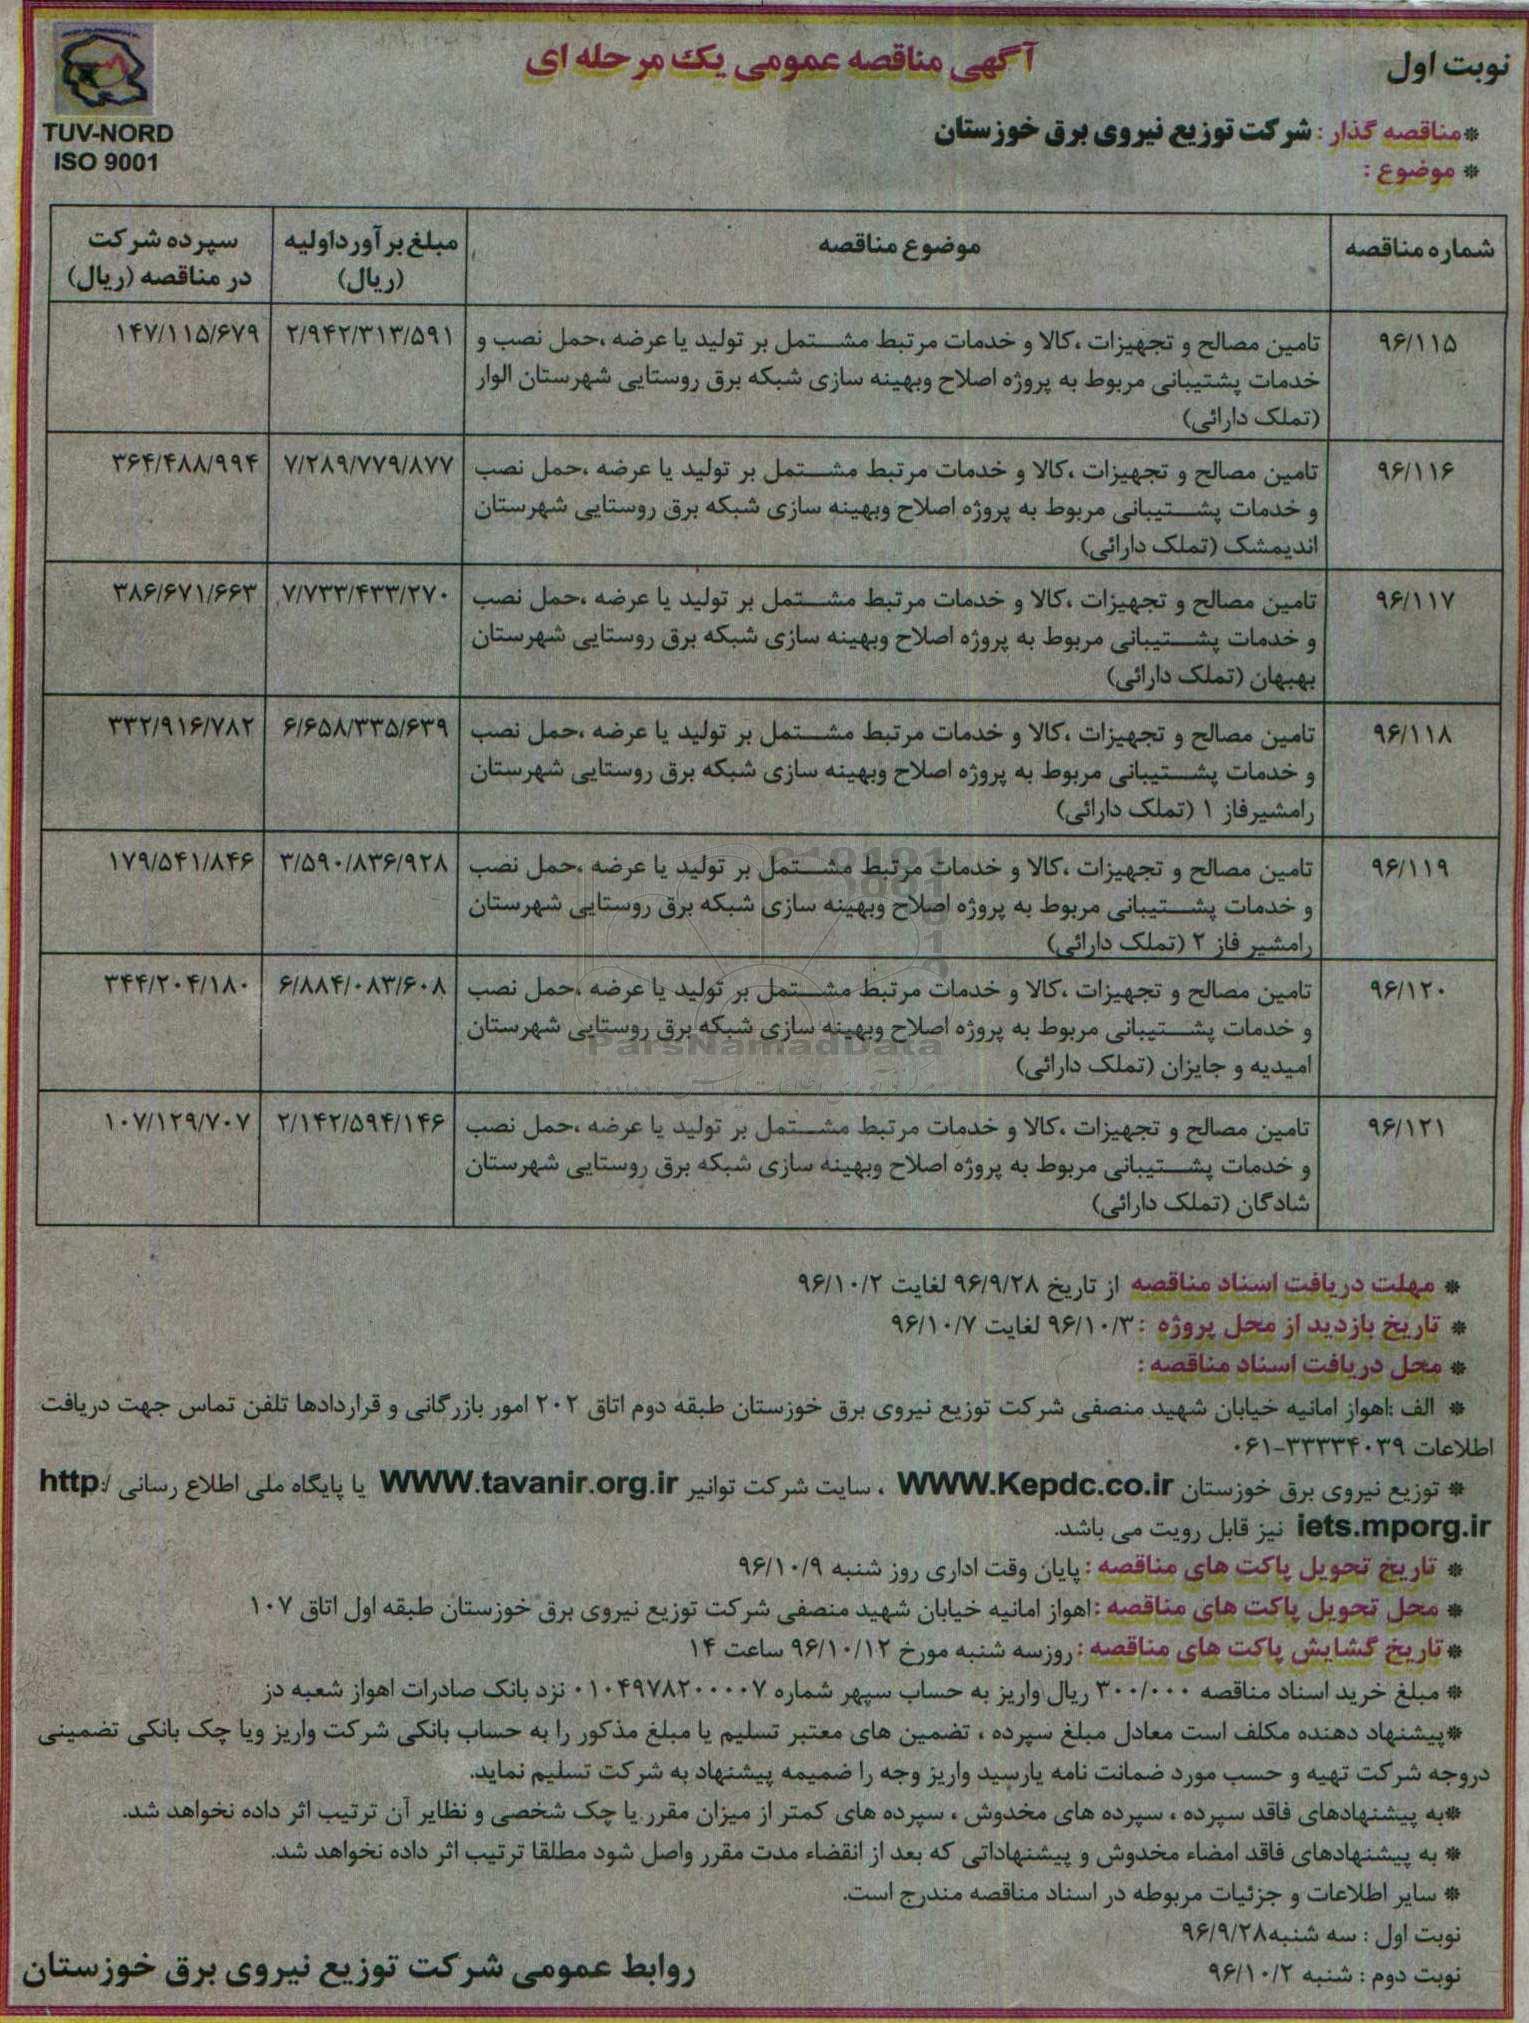 نوبت اول
آگهی مناقصه عمومی یک مرحله ای
TUV-NORD
ISO 9001
*مناقصه گذار : شرکت توزیع نیروی برق خوزستان
* موضوع :
شماره مناقصه | موضوع مناقصه | مبلغ برآورداولیه (ریال) | سپرده شرکت در مناقصه (ریال)
۹۶/۱۱۵ | تامین مصالح و تجهیزات ،کالا و خدمات مرتبط مشتمل بر تولید یا عرضه ،حمل نصب و | ۲/۹۴۲/۳۱۳/۵۹۱ | ۱۴۷/۱۱۵/۶۷۹
خدمات پشتیبانی مربوط به پروژه اصلاح وبهینه سازی شبکه برق روستایی شهرستان الوار
(تملک دارائی)
۹۶/۱۱۶ | تامین مصالح و تجهیزات ،کالا و خدمات مرتبط مشتمل بر تولید یا عرضه ،حمل نصب | ۷/۲۸۹/۷۷۹/۸۷۷ | ۳۶۴/۴۸۸/۹۹۴
و خدمات پشتیبانی مربوط به پروژه اصلاح وبهینه سازی شبکه برق روستایی شهرستان
اندیمشک (تملک دارائی)
۹۶/۱۱۷ | تامین مصالح و تجهیزات ،کالا و خدمات مرتبط مشتمل بر تولید یا عرضه ،حمل نصب | ۷/۷۳۳/۴۳۳/۲۷۰ | ۳۸۶/۶۷۱/۶۶۳
و خدمات پشتیبانی مربوط به پروژه اصلاح وبهینه سازی شبکه برق روستایی شهرستان
بهبهان (تملک دارائی)
۹۶/۱۱۸ | تامین مصالح و تجهیزات ،کالا و خدمات مرتبط مشتمل بر تولید یا عرضه ،حمل نصب | ۶/۶۵۸/۳۳۵/۶۳۹ | ۳۳۲/۹۱۶/۷۸۲
و خدمات پشتیبانی مربوط به پروژه اصلاح وبهینه سازی شبکه برق روستایی شهرستان
رامشیرفاز ۱ (تملک دارائی)
۹۶/۱۱۹ | تامین مصالح و تجهیزات ،کالا و خدمات مرتبط مشتمل بر تولید یا عرضه ،حمل نصب | ۳/۵۹۰/۸۳۶/۹۲۸ | ۱۷۹/۵۴۱/۸۴۶
و خدمات پشتیبانی مربوط به پروژه اصلاح وبهینه سازی شبکه برق روستایی شهرستان
رامشیر فاز ۲ (تملک دارائی)
۹۶/۱۲۰ | تامین مصالح و تجهیزات ،کالا و خدمات مرتبط مشتمل بر تولید یا عرضه ،حمل نصب | ۶/۸۸۴/۰۸۳/۶۰۸ | ۳۴۴/۲۰۴/۱۸۰
و خدمات پشتیبانی مربوط به پروژه اصلاح وبهینه سازی شبکه برق روستایی شهرستان
ParsNamadData
امیدیه و جایزان (تملک دارائی)
۹۶/۱۲۱ | تامین مصالح و تجهیزات ،کالا و خدمات مرتبط مشتمل بر تولید یا عرضه ،حمل نصب | ۲/۱۴۲/۵۹۴/۱۴۶ | ۱۰۷/۱۲۹/۷۰۷
و خدمات پشتیبانی مربوط به پروژه اصلاح وبهینه سازی شبکه برق روستایی شهرستان
شادگان (تملک دارائی)
* مهلت دریافت اسناد مناقصه از تاریخ ۹۶/۹/۲۸ لغایت ۹۶/۱۰/۲
* تاریخ بازدید از محل پروژه : ۹۶/۱۰/۳ لغایت ۹۶/۱۰/۷
* محل دریافت اسناد مناقصه :
* الف :اهواز امانیه خیابان شهید منصفی شرکت توزیع نیروی برق خوزستان طبقه دوم اتاق ۲۰۲ امور بازرگانی و قراردادها تلفن تماس جهت دریافت
اطلاعات ۳۳۳۳۴۰۳۹-۰۶۱
* توزیع نیروی برق خوزستان WWW.Kepdc.co.ir ، سایت شرکت توانیر WWW.tavanir.org.ir یا پایگاه ملی اطلاع رسانی http:/
iets.mporg.ir نیز قابل رویت می باشد.
* تاریخ تحویل پاکت های مناقصه : پایان وقت اداری روز شنبه ۹۶/۱۰/۹
* محل تحویل پاکت های مناقصه :اهواز امانیه خیابان شهید منصفی شرکت توزیع نیروی برق خوزستان طبقه اول اتاق ۱۰۷
*تاریخ گشایش پاکت های مناقصه : روزسه شنبه مورخ ۹۶/۱۰/۱۲ ساعت ۱۴
* مبلغ خرید اسناد مناقصه ۳۰۰/۰۰۰ ریال واریز به حساب سپهر شماره ۰۱۰۴۹۷۸۲۰۰۰۰۷ نزد بانک صادرات اهواز شعبه دز
*پیشنهاد دهنده مکلف است معادل مبلغ سپرده ، تضمین های معتبر تسلیم یا مبلغ مذکور را به حساب بانکی شرکت واریز ویا چک بانکی تضمینی
دروجه شرکت تهیه و حسب مورد ضمانت نامه یارسید واریز وجه را ضمیمه پیشنهاد به شرکت تسلیم نماید.
*به پیشنهادهای فاقد سپرده ، سپرده های مخدوش ، سپرده های کمتر از میزان مقرر.یا چک شخصی و نظایر آن ترتیب اثر داده نخواهد شد.
* به پیشنهادهای فاقد امضاء مخدوش و پیشنهاداتی که بعد از انقضاء مدت مقرر واصل شود مطلقا ترتیب اثر داده نخواهد شد.
* سایر اطلاعات و جزئیات مربوطه در اسناد مناقصه مندرج است.
نوبت اول : سه شنبه۹۶/۹/۲۸
نوبت دوم : شنبه ۹۶/۱۰/۲
روابط عمومی شرکت توزیع نیروی برق خوزستان